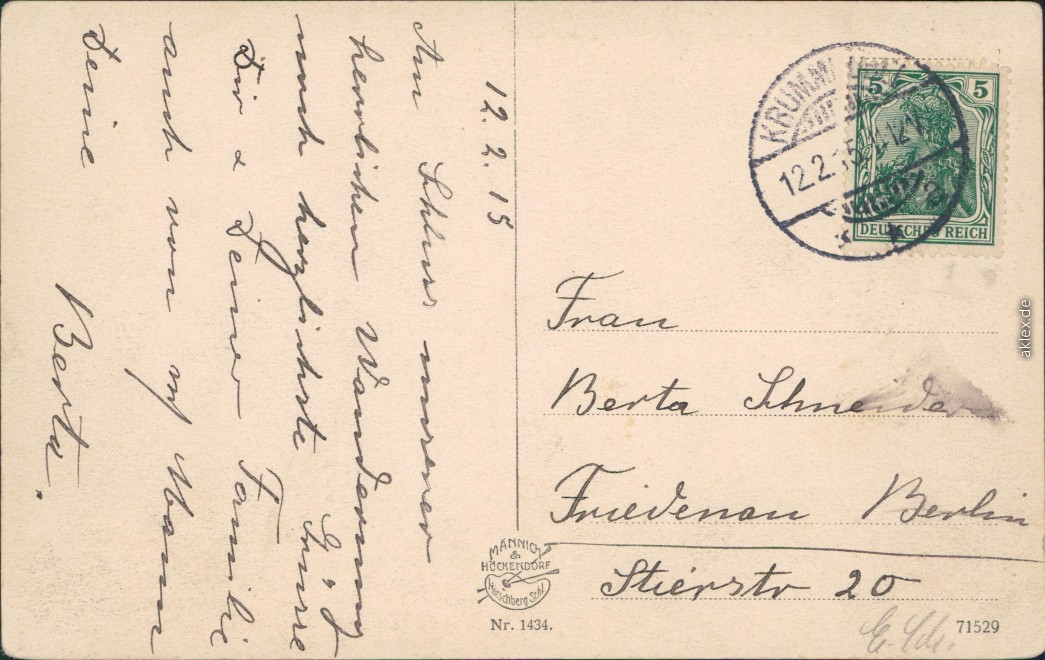 12. 2. 15
Am Schluss unserer
herrlichen Wanderung
noch herzlichste Grüsse
Dir & Deiner Familie
auch von m/ Mann
Deine
Berta.
KRUMMHÜBEL
12.2.15
5 5
DEUTSCHES REICH
Frau
Berta Schneider
Friedenau Berlin
Stierstr 20
MÄNNICH
&
HÖCKENDORF
Hirschberg Schl.
Nr. 1434.
71529
aklex.de